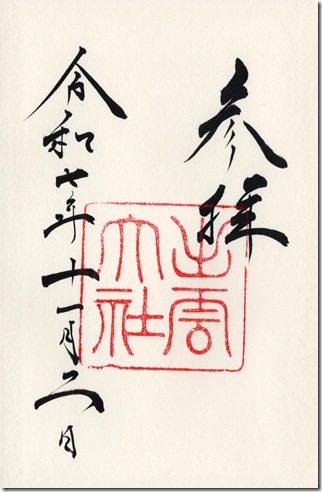 参拝
出雲大社
令和七年十一月二日